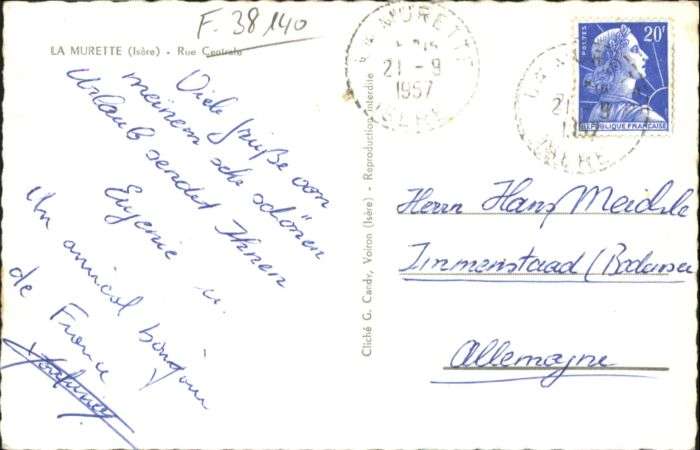 F. 38 140
LA MURETTE (Isère) - Rue Centrale
Viele Grüße von
meinem sehr schönen
Urlaub sendet Ihnen
Eugenie u.
Un amical bonjour
de France
Cliché G. Candy, Voiron (Isère) - Reproduction interdite
LA MURETTE
21 - 9
1957
ISÈRE
LA MURETTE
21 - 9
1957
ISÈRE
POSTES
20F
REPUBLIQUE FRANCAISE
Herrn Hans
Immenstaad (Bodensee
Allemagne